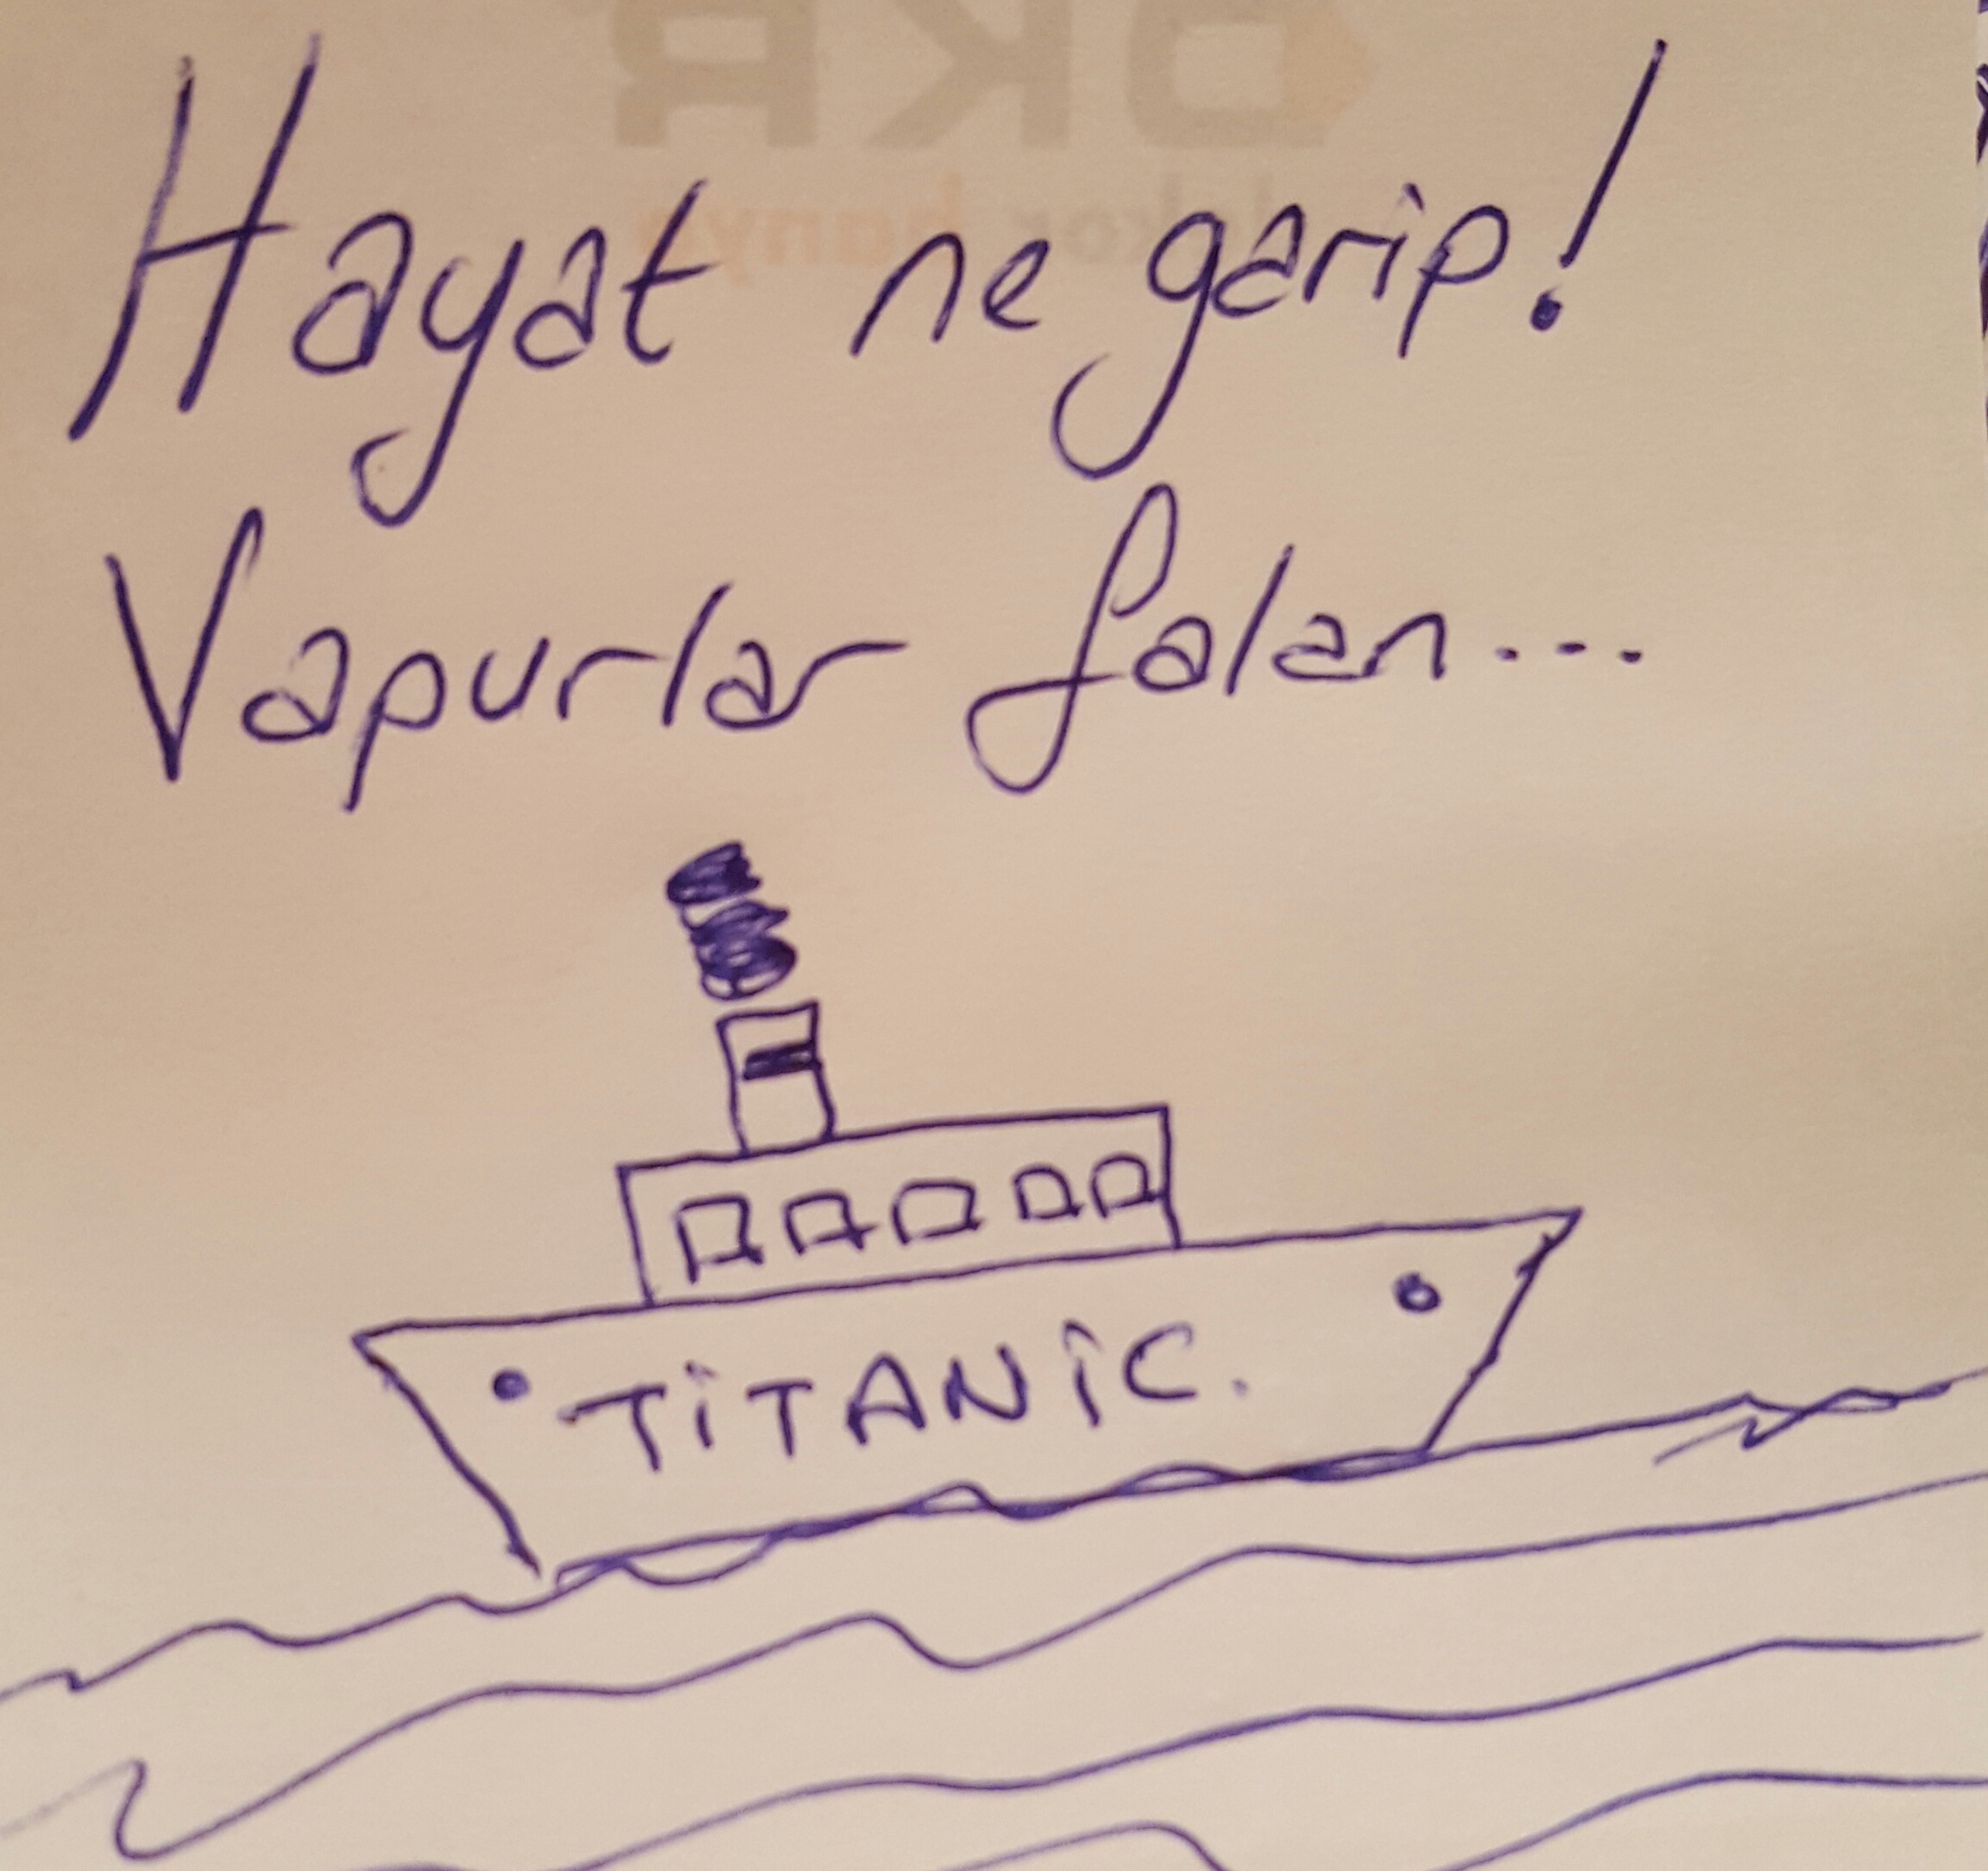 Hayat ne garip!
Vapurlar falan...
TiTANiC.